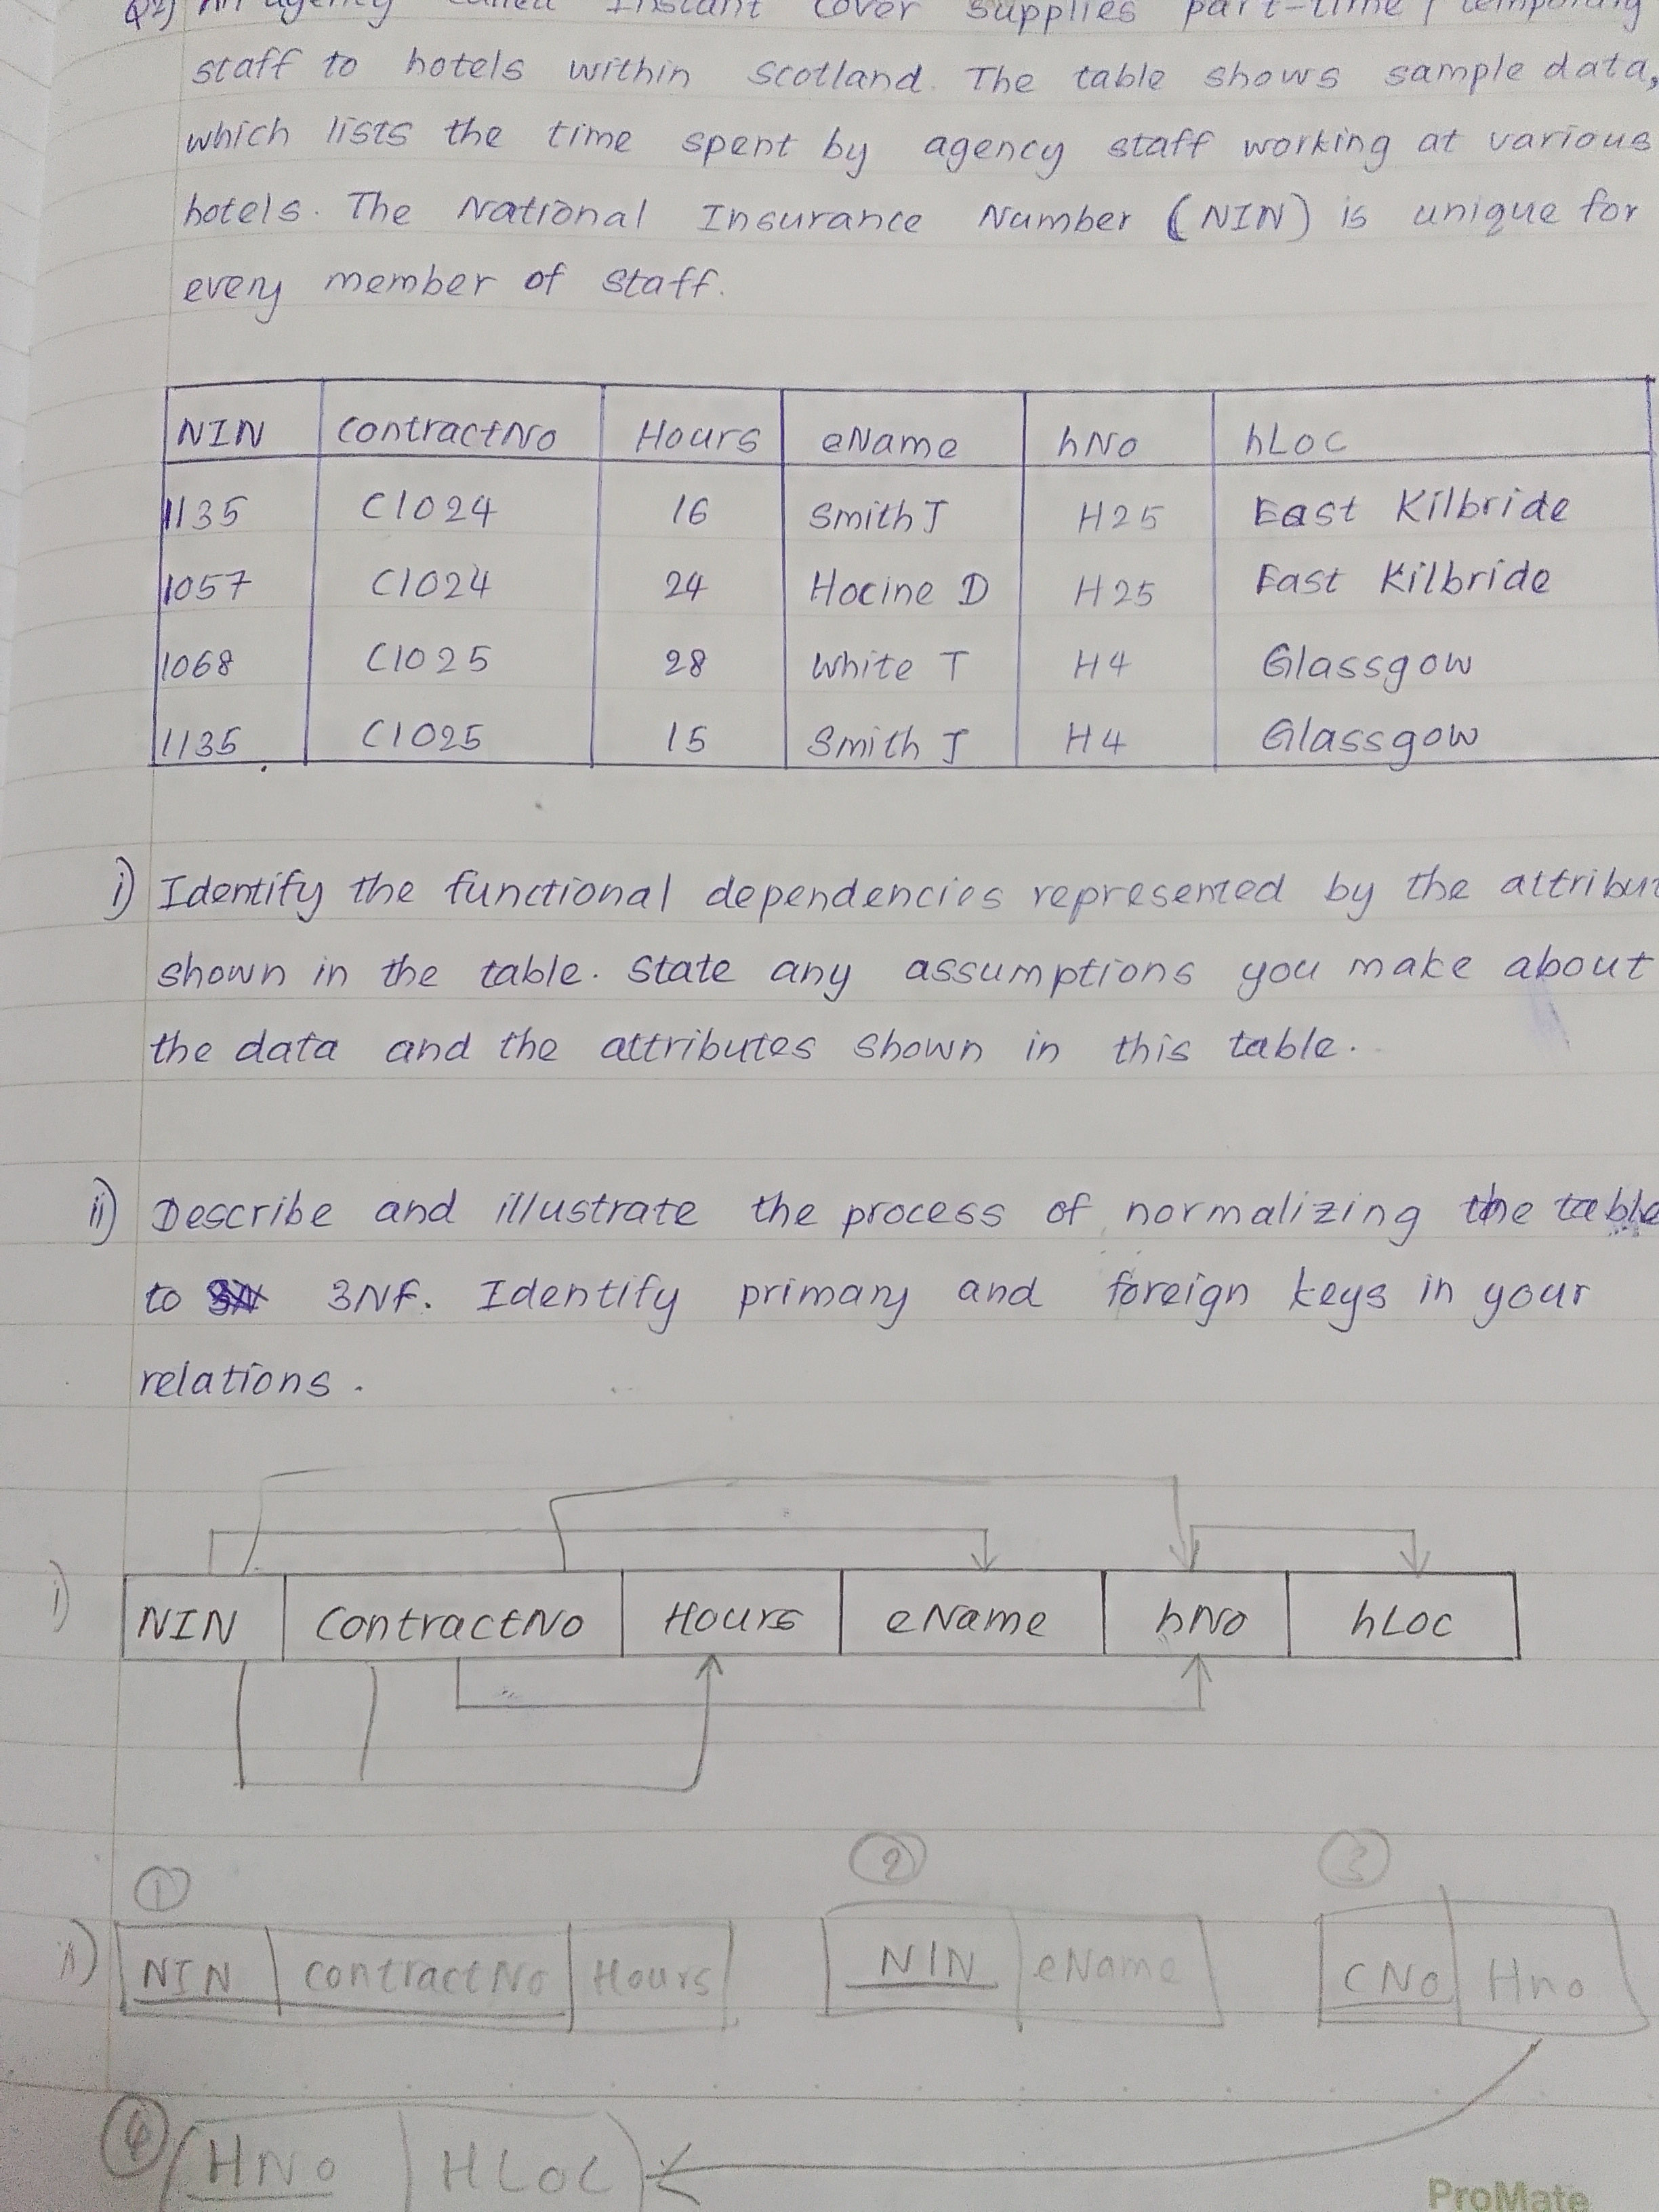 Q2) An agency called Instant Cover supplies part-time / temporary
staff to hotels within Scotland. The table shows sample data,
which lists the time spent by agency staff working at various
hotels. The National Insurance Number (NIN) is unique for
every member of staff.
NIN ContractNo Hours eName hNo hLoc
1135 C1024 16 Smith J H25 East Kilbride
1057 C1024 24 Hocine D H25 East Kilbride
1068 C1025 28 White T H4 Glassgow
1135 C1025 15 Smith J H4 Glassgow
i) Identify the functional dependencies represented by the attribut
shown in the table. State any assumptions you make about
the data and the attributes shown in this table.
ii) Describe and illustrate the process of normalizing the table
to 3NF. Identify primary and foreign keys in your
relations.
i) NIN ContractNo Hours eName hNo hLoc
1 2 3
ii) NIN ContractNo Hours NIN eName CNo Hno
4 HNo HLoc
ProMate